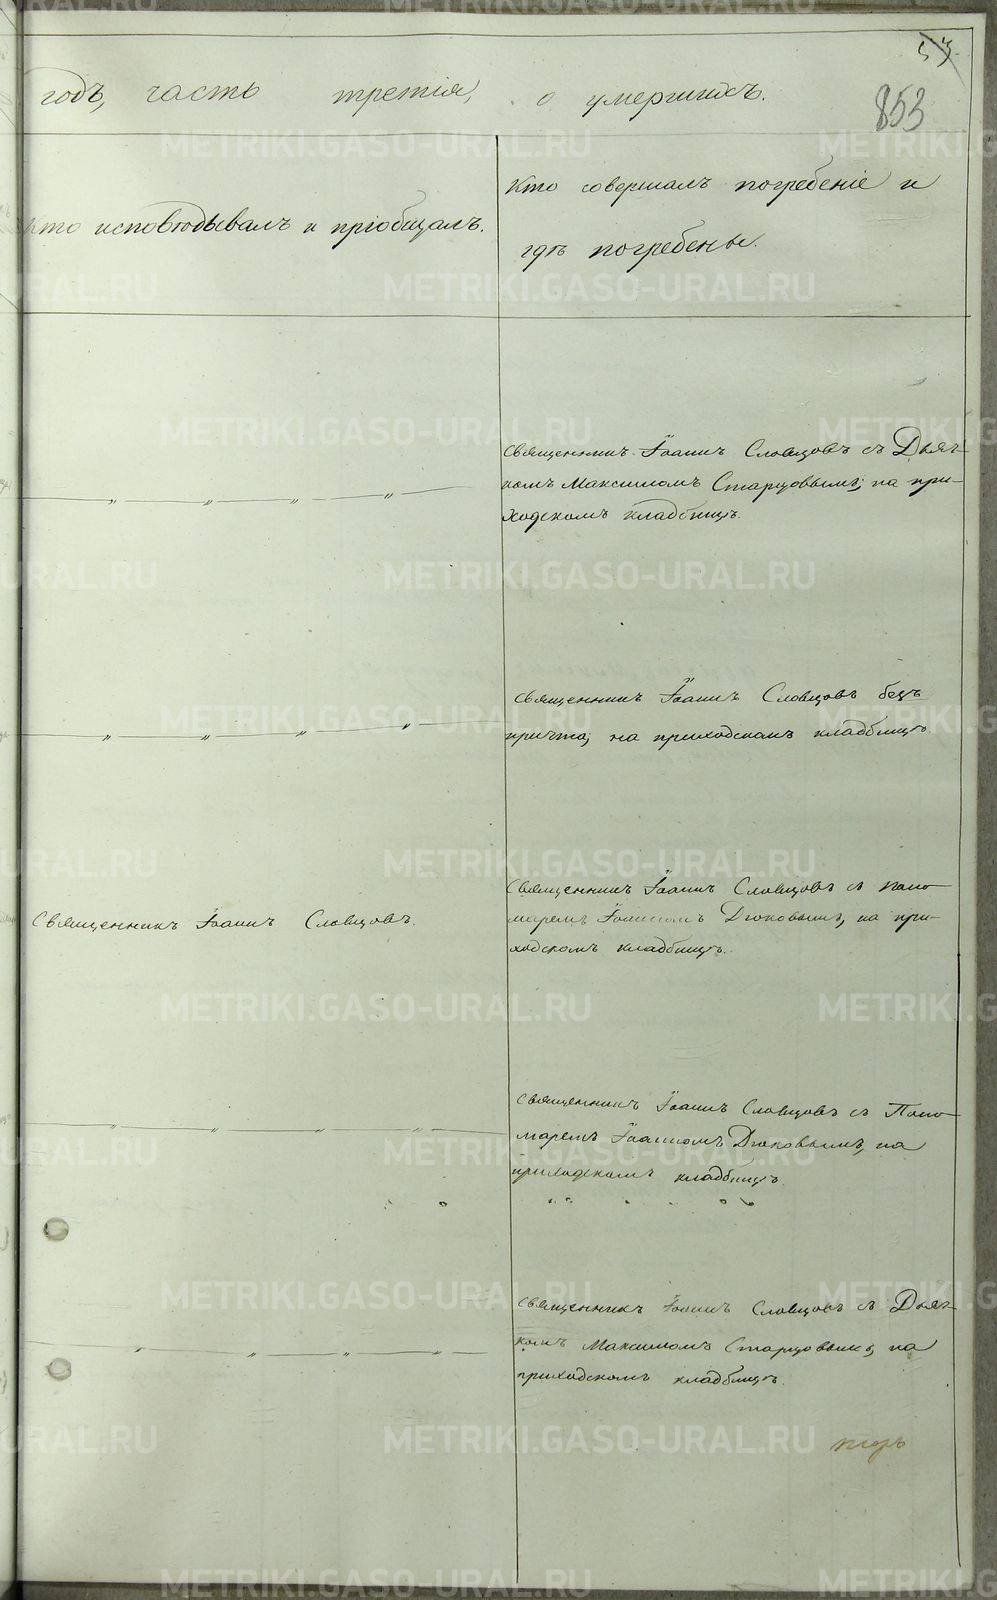 53
853
годъ, часть третія, о умершихъ.
Кто исповѣдывалъ и пріобщалъ.
Кто совершалъ погребеніе и
гдѣ погребены.
Священникъ Іоаннъ Словцовъ съ Дьяч-
комъ Максимомъ Старцовымъ, на при-
ходскомъ кладбищѣ.
— „ — „ — „ — „ —
Священникъ Іоаннъ Словцовъ безъ
причта, на приходскомъ кладбищѣ.
— „ — „ — „ — „ —
Священникъ Іоаннъ Словцовъ.
Священникъ Іоаннъ Словцовъ съ Поно-
маремъ Іоанномъ Дюковымъ, на при-
ходскомъ кладбищѣ.
— „ — „ — „ — „ —
Священникъ Іоаннъ Словцовъ съ Поно-
маремъ Іоанномъ Дюковымъ, на
приходскомъ кладбищѣ.
— „ — „ — „ — „ —
Священникъ Іоаннъ Словцовъ съ Дьяч-
комъ Максимомъ Старцовымъ, на
приходскомъ кладбищѣ.
METRIKI.GASO-URAL.RU